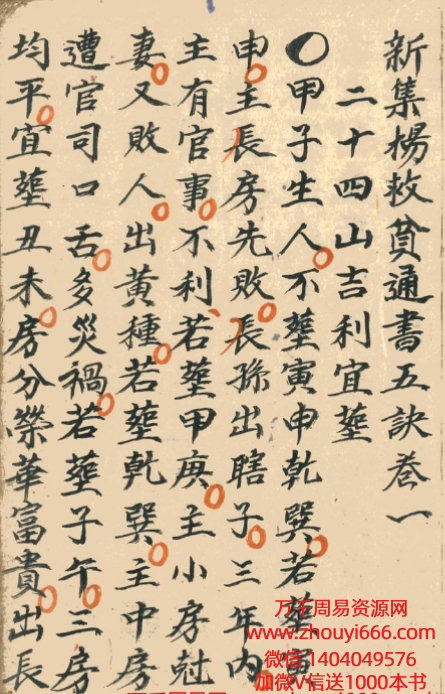 新集楊救貧通書五訣卷一
二十四山吉利宜塟
○甲子生人不塟寅申乾巽若塟寅
申主長房先敗長孫出瞎子三年內
主有官事不利若塟甲庚主小房尅
妻又敗人出黄種若塟乹巽主中房
遭官司口舌多災禍若塟子午三房
均平宜塟丑未房分榮華富貴出長
万千周易资源网
www.zhouyi666.com
微信1404049576
加微V信送1000本书